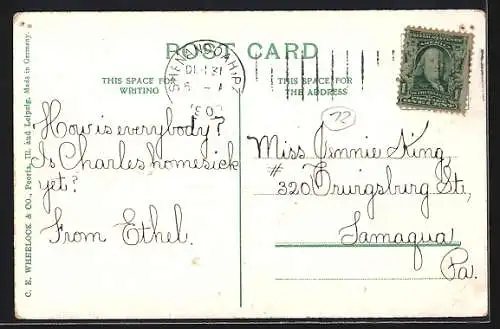 POST CARD
SHENANDOAH, PA
THIS SPACE FOR
WRITING
THIS SPACE FOR
THE ADDRESS
72
How is everybody?
Is Charles homesick
yet?
From Ethel.
Miss Jennie King,
# 320 St.,
Tamaqua
Pa.
C. E. WHEELOCK & CO., Peoria, Ill. and Leipzig. Made in Germany.